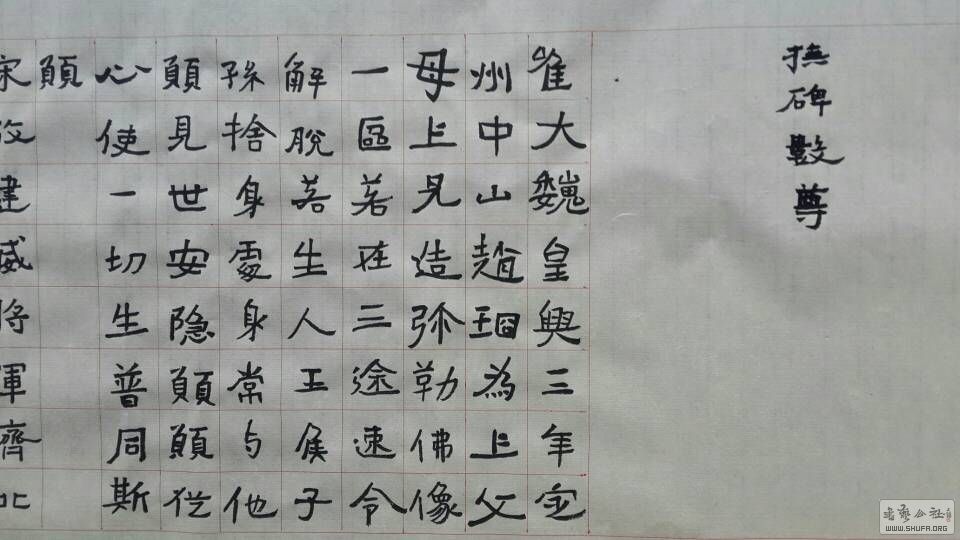 撫碑數尊
唯大魏皇興三年定
州中山趙珚為亡父
母亡兄造弥勒佛像
一區若在三途速令
解脫若生人王侯子
孫捨身處身常与他
願見世安隐願願従
心使一切生普同斯
願
宋故建威将軍齊北
书艺公社
WWW.SHUFA.ORG